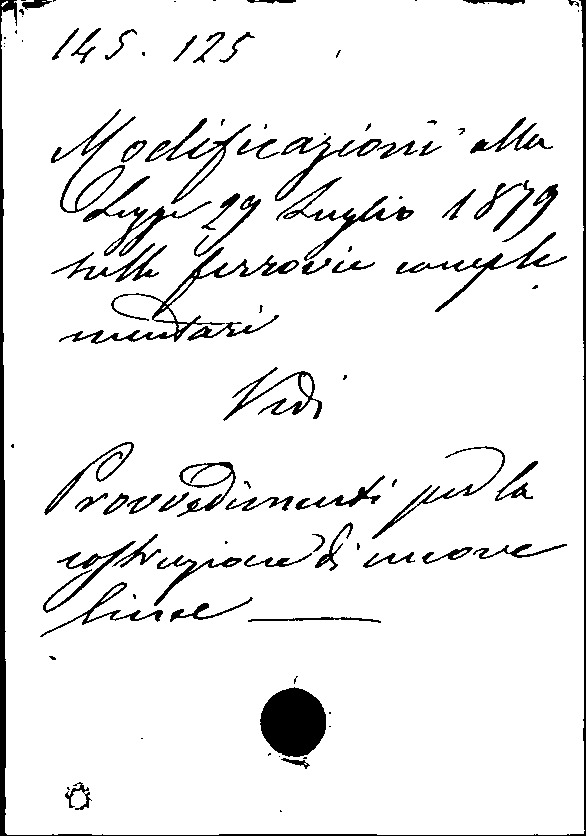 145. 125
Modificazioni alla
Legge 29 Luglio 1879
sulle ferrovie comple
mentari
Vedi
Provvedimenti per la
costruzione di nuove
linee